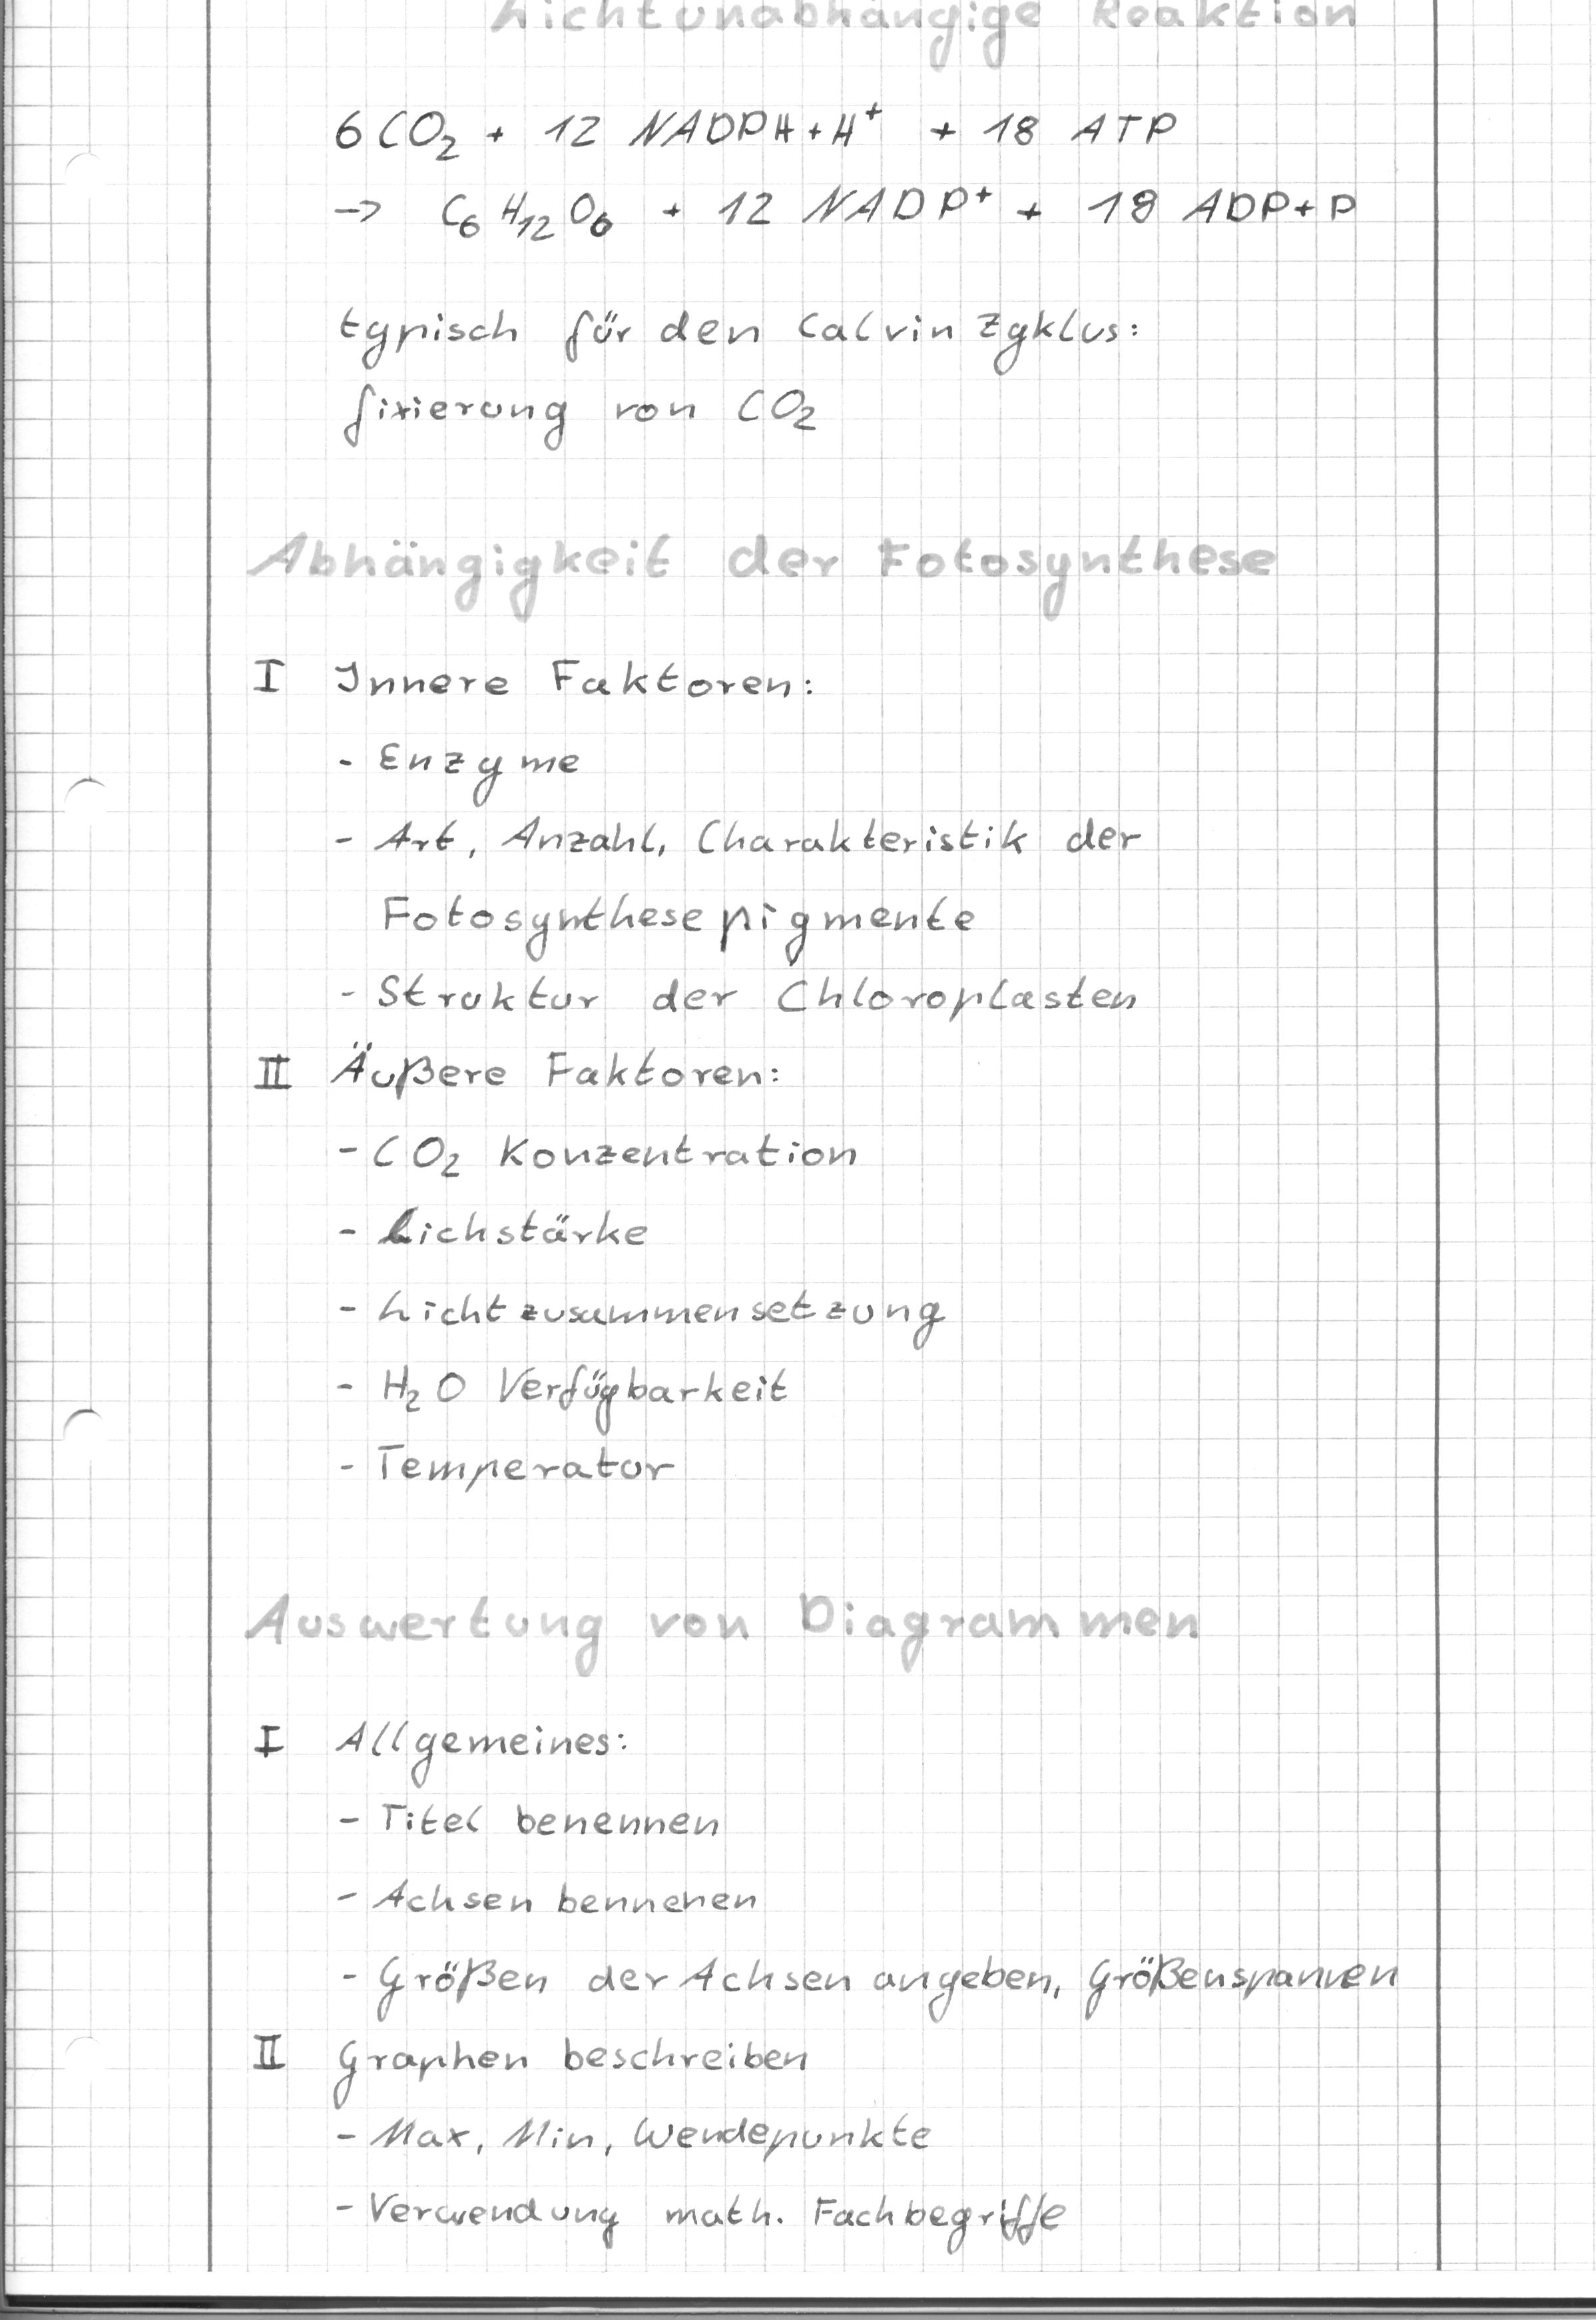 Lichtunabhängige Reaktion
6 CO₂ + 12 NADPH+H⁺ + 18 ATP
→ C₆H₁₂O₆ + 12 NADP⁺ + 18 ADP+P
typisch für den Calvin Zyklus:
fixierung von CO₂
Abhängigkeit der Fotosynthese
I Innere Faktoren:
- Enzyme
- Art, Anzahl, Charakteristik der
Fotosynthesepigmente
- Struktur der Chloroplasten
II Äußere Faktoren:
- CO₂ Konzentration
- Lichstärke
- Lichtzusammensetzung
- H₂O Verfügbarkeit
- Temperatur
Auswertung von Diagrammen
I Allgemeines:
- Titel benennen
- Achsen bennenen
- Größen der Achsen angeben, Größenspannen
II Graphen beschreiben
- Max, Min, Wendepunkte
- Verwendung math. Fachbegriffe